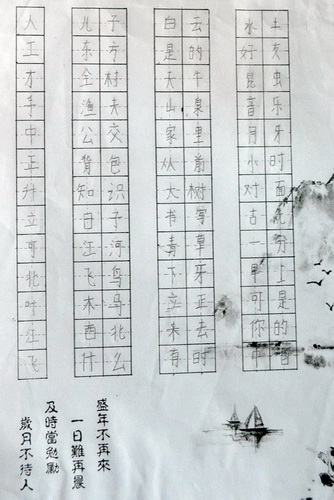 人
工
才
手
中
正
升
立
河
北
叶
江
飞
儿子
东方
全村
渔夫
公交
背包
知识
日子
江河
飞鸟
木马
西北
什么
白云
是的
天牛
山泉
家里
从前
大树
书写
青草
下牙
立正
来去
有的
水土
好友
昆虫
音乐
月牙
小时
对面
古
一分
早上
可是
你的
盛年不再來
一日難再晨
及時當勉勵
歲月不待人